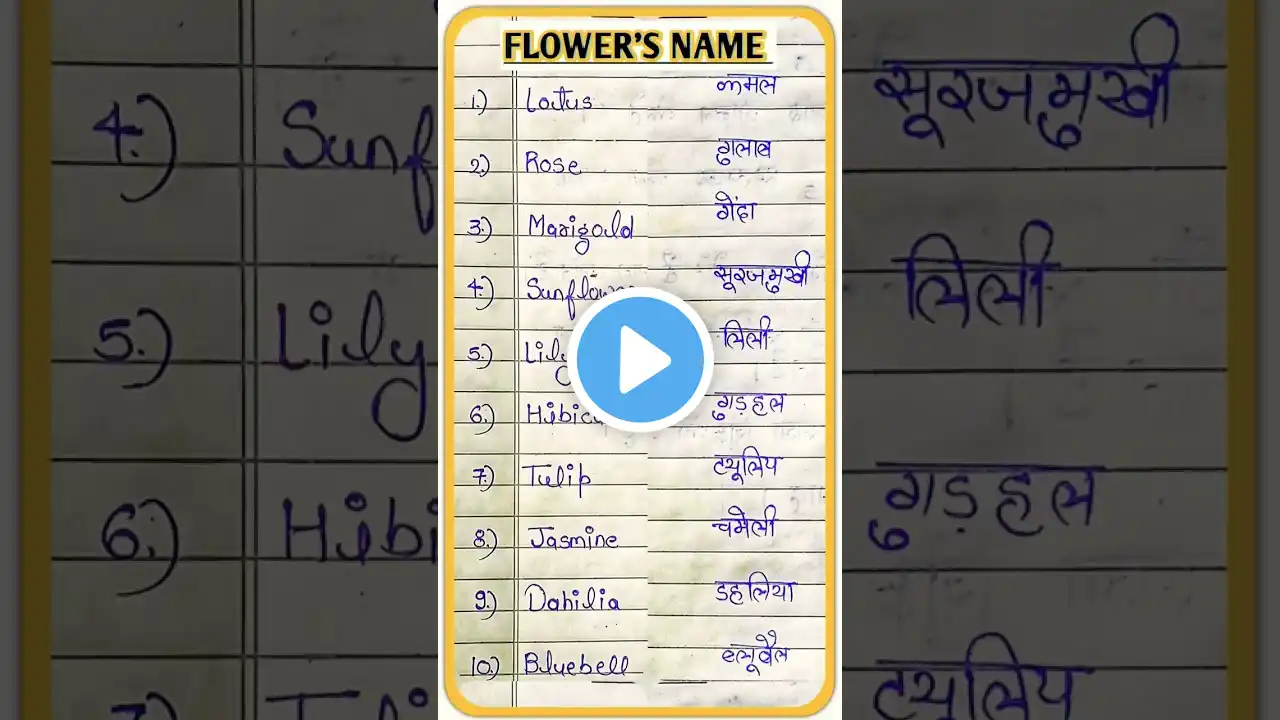 FLOWER'S NAME
1.) Lotus कमल
2.) Rose गुलाब
3.) Marigold गेंदा
4.) Sunflower सूरजमुखी
5.) Lily लिली
6.) गुड़हल
7.) Tulip ट्यूलिप
8.) Jasmine चमेली
9.) Dahilia डहलिया
10.) Bluebell ब्लूबैल
4.) Sunf सूरजमुखी
5.) Lily लिली
6.) Hibi गुड़हल
7.) ट्यूलिप